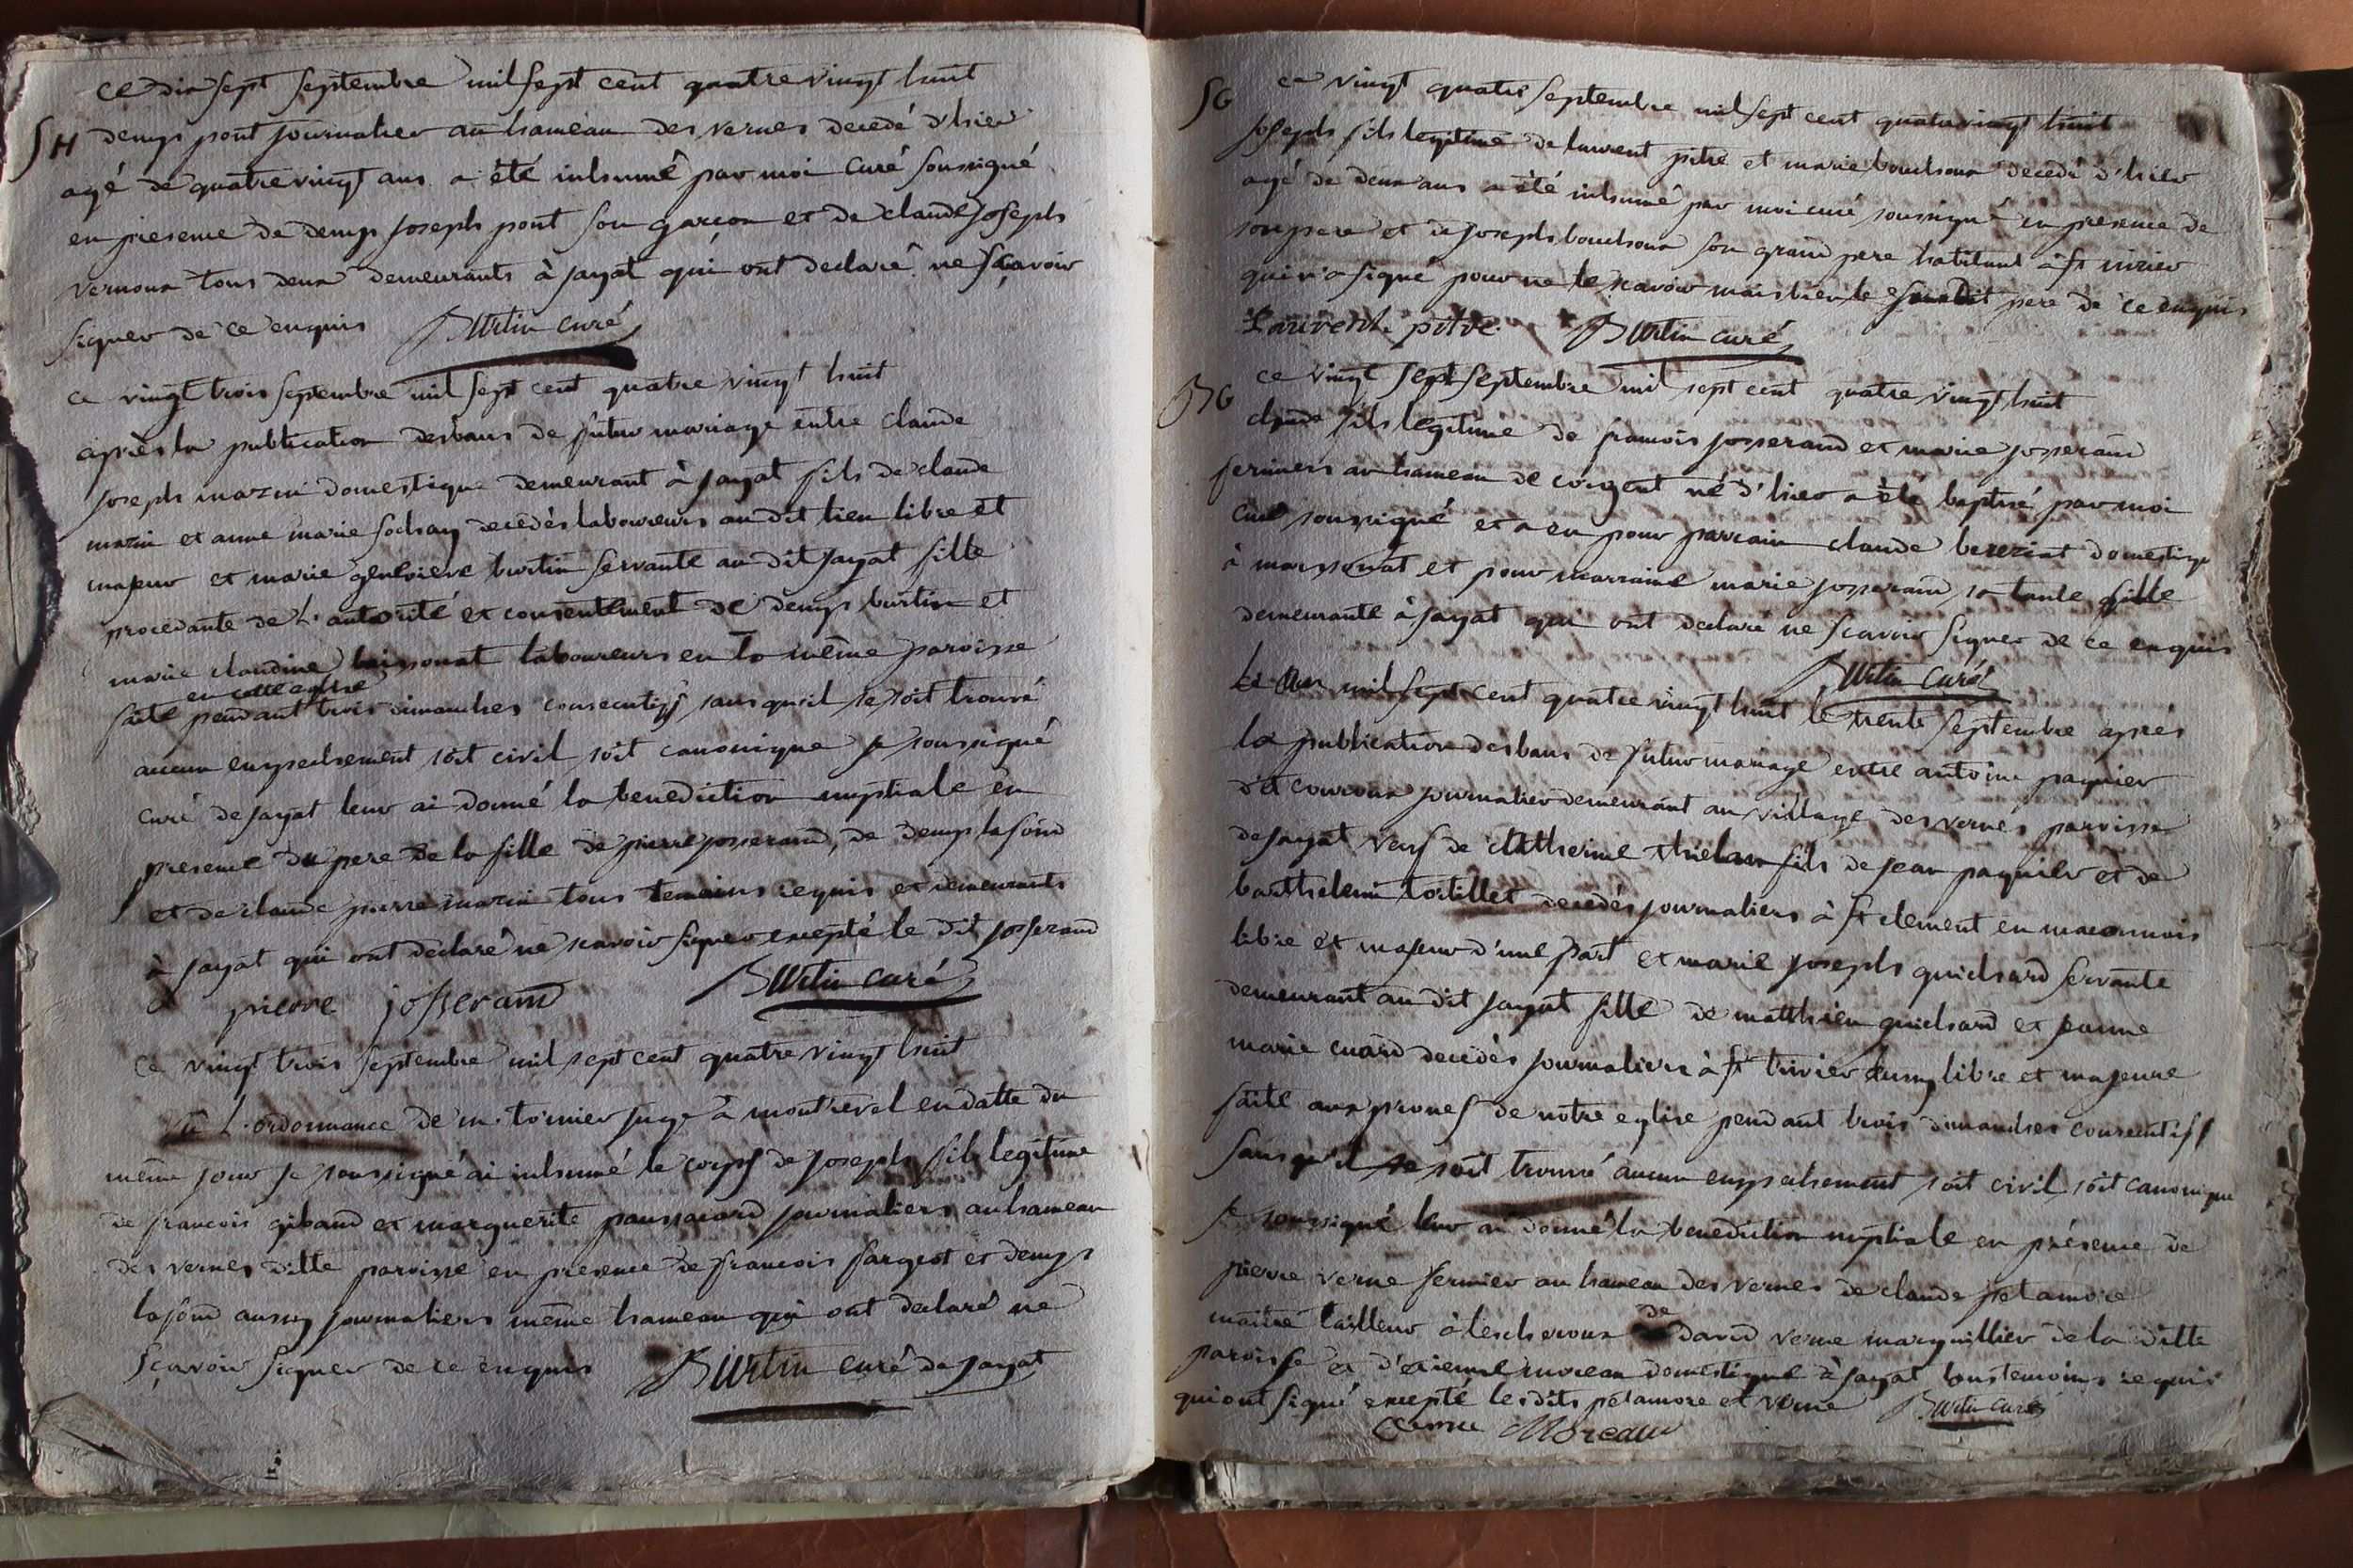 ce dix sept septembre mil sept cent quatre vingt huit
SH denys pont journalier au hameau des vernes decedé d'hier
agé de quatre vingt ans a été inhumé par moi curé soussigné
en presence de denys joseph pont son garçon et de claude joseph
vernoux tous deux demeurants à jayat qui ont declaré ne sçavoir
signer de ce enquis Burtin curé
ce vingt trois septembre mil sept cent quatre vingt huit
après la publication des bans de futur mariage entre claude
joseph mazin domestique demeurant à jayat fils de claude
mazin et anne marie decedés laboureurs au dit lieu libre et
majeur et marie genevieve burtin servante au dit jayat fille
procedante de l'autorité et consentement de denys burtin et
marie claudine laboureurs en la même paroisse
en cette eglise
faite pendant trois dimanches consecutifs sans qu'il se soit trouvé
aucun empechement soit civil soit canonique je soussigné
curé de jayat leur ai donné la benediction nuptiale en
presence du pere de la fille de pierre josserand, de denys lafond
et de claude pierre mazin tous temoins requis et demeurants
à jayat qui ont declaré ne scavoir signer excepté le dit josserand
pierre josserand Burtin curé
ce vingt trois septembre mil sept cent quatre vingt huit
vû l'ordonnance de m. tornier juge à montrevel en datte du
même jour je soussigné ai inhumé le corps de joseph fils legitime
de francois giband et marguerite journaliers au hameau
des vernes ditte paroisse en presence de francois fargeot et denys
lafond aussy journaliers même hameau qui ont declaré ne
sçavoir signer de ce enquis Burtin curé de jayat
SG ce vingt quatre septembre mil sept cent quatre vingt huit
joseph fils legitime de laurent pitre et marie bouchoux decedé d'hier
agé de deux ans a été inhumé par moi curé soussigné en presence de
son pere et de joseph bouchoux son grand pere habitant à st
qui n'a signé pour ne le scavoir mais bien le susdit pere de ce enquis
Laurent pitre Burtin curé
BG ce vingt sept septembre mil sept cent quatre vingt huit
claude fils legitime de francois josserand et marie josserand
fermiers au hameau de corgent né d'hier a été baptisé par moi
curé soussigné et a eu pour parrain claude bereziat domestique
à marsonnat et pour marraine marie josserand sa tante fille
demeurante à jayat qui ont declaré ne scavoir signer de ce enquis
Burtin curé
L'an mil sept cent quatre vingt huit le trente septembre après
la publication des bans de futur mariage entre antoine paquier
dit couroux journalier demeurant au village des vernes paroisse
de jayat veuf de catherine fils de jean paquier et de
barthelemi tortillet decedés journaliers à st clement en maconnois
libre et majeur d'une part et marie joseph guichard servante
demeurant au dit jayat fille de matthieu guichard et jeanne
marie cuard decedés journaliers à st trivier libre et majeure
faite aux prones de notre eglise pendant trois dimanches consecutifs
sans qu'il se soit trouvé aucun empechement soit civil soit canonique
je soussigné leur ai donné la benediction nuptiale en présence de
pierre verne fermier au hameau des vernes de claude petamore
maitre tailleur à lescheroux de david verne marguillier de la ditte
paroisse et d'etienne moreau domestique à jayat tous temoins requis
qui ont signé excepté les dits petamore et verne Burtin curé
etienne Moreau